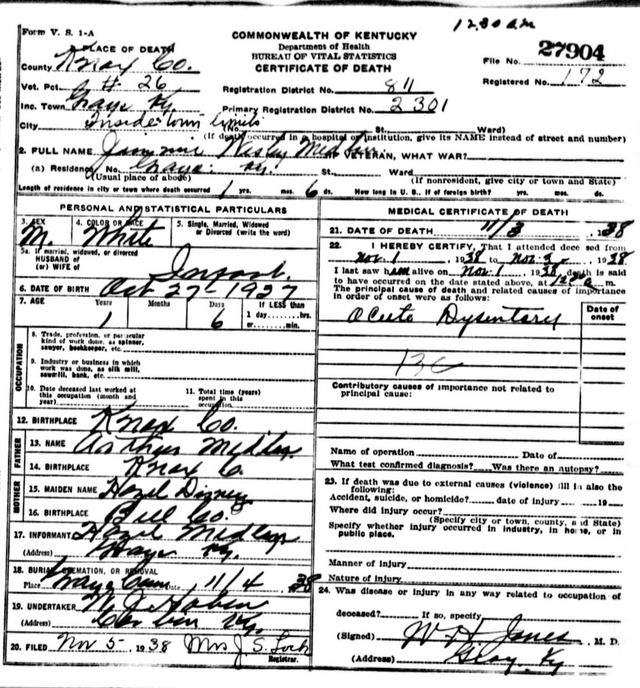 12:30 a.m
Form V. S. 1-A
COMMONWEALTH OF KENTUCKY
Department of Health
BUREAU OF VITAL STATISTICS
CERTIFICATE OF DEATH
File No. 27904
Registered No. 172
PLACE OF DEATH
County Knox Co.
Vot. Pct. # 26
Registration District No. 811
Inc. Town Grays Ky
Primary Registration District No. 2301
City Inside town limits (No. St. Ward)
(If death occurred in a hospital or institution, give its NAME instead of street and number)
2. FULL NAME Medley VETERAN, WHAT WAR?
(a) Residence. No. Grays Ky. St. Ward
(Usual place of abode) (If nonresident, give city or town and State)
Length of residence in city or town where death occurred 1 yrs. mos. 6 ds. How long in U. S., if of foreign birth? yrs. mos. ds.
PERSONAL AND STATISTICAL PARTICULARS
3. SEX M. 4. COLOR OR RACE White 5. Single, Married, Widowed or Divorced (write the word)
5a. If married, widowed, or divorced
HUSBAND of
(or) WIFE of Infant.
6. DATE OF BIRTH Oct 27 - 1937
7. AGE Years 1 Months Days 6 If LESS than 1 day......hrs. or......min.
OCCUPATION
8. Trade, profession, or particular kind of work done, as spinner, sawyer, bookkeeper, etc.
9. Industry or business in which work was done, as silk mill, sawmill, bank, etc.
10. Date deceased last worked at this occupation (month and year)
11. Total time (years) spent in this occupation
12. BIRTHPLACE Knox Co.
FATHER
13. NAME Arthur Medley
14. BIRTHPLACE Knox C.
MOTHER
15. MAIDEN NAME Hazel Disney
16. BIRTHPLACE Bell Co.
17. INFORMANT Hazel Medley
(Address) Grays Ky.
18. BURIAL, CREMATION, OR REMOVAL
Place Grays Date 11/4 1938
19. UNDERTAKER
(Address) Corbin Ky.
20. FILED Nov 5 1938 Mrs J. S. Registrar.
MEDICAL CERTIFICATE OF DEATH
21. DATE OF DEATH 11/3 1938
22. I HEREBY CERTIFY, That I attended deceased from
Nov. 1 1938 to Nov. 3 1938
I last saw him alive on Nov. 1 1938, death is said
to have occurred on the date stated above, at m.
The principal cause of death and related causes of importance
in order of onset were as follows:
Date of onset
Acute Dysentary
Contributory causes of importance not related to
principal cause:
Name of operation Date of
What test confirmed diagnosis? Was there an autopsy?
23. If death was due to external causes (violence) fill in also the
following:
Accident, suicide, or homicide? date of injury 19
Where did injury occur?
(Specify city or town, county, and State)
Specify whether injury occurred in industry, in home, or in
public place.
Manner of injury
Nature of injury
24. Was disease or injury in any way related to occupation of
deceased? If so, specify
(Signed) W H Jones M. D.
(Address) Gray, Ky